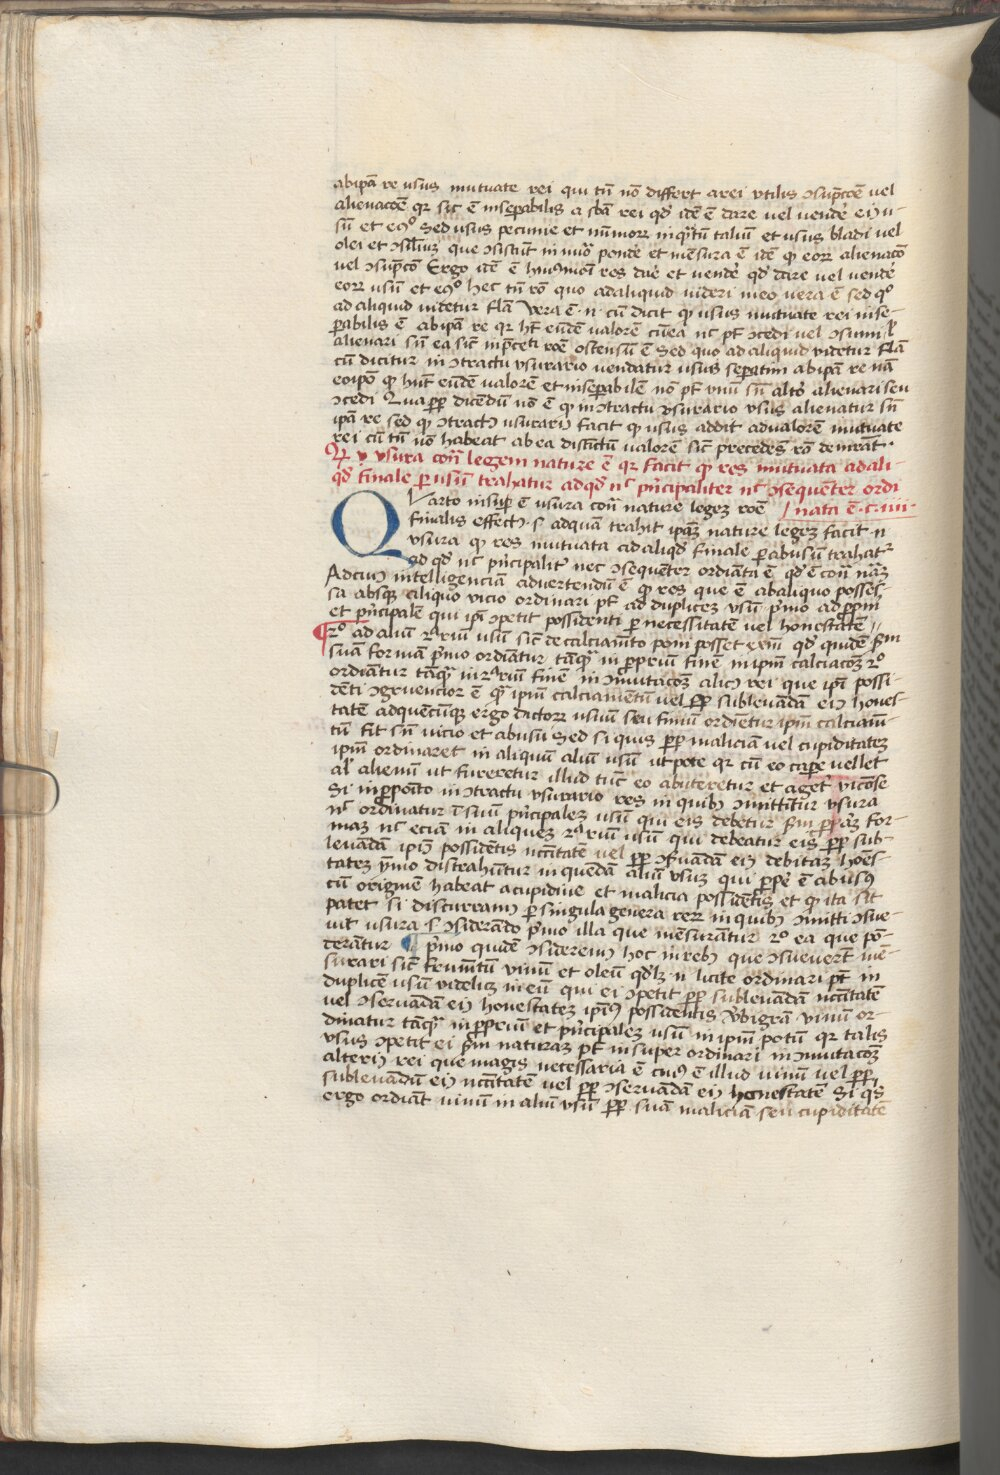 abipā re usus mutuate rei qui tn̄ nō differt a rei utilis ɔsūpcōē vel
alienacōē qr sic ē inseꝑabilis a sb̄a rei qd̓ idē ē dare vel vende̓ eiꝰ u-
sū et eꝯͦ Sed usus pecunie et nūmorꝝ inqͣtū taliū et usus bladi vel
olei et ɔsiliuꝫ que ɔsistūt in nūo ponde̓ et mēsura ē idē ꝙ eorꝝ alienacō
vel ɔsūpcō Ergo idē ē huiꝰmōi res dare et vende̓ qd̓ dare vel vende̓
eorꝝ usū et eꝯͦ hec tn̄ rō quo ad aliquid videri meo vera ē sed qͦ
ad aliquid videtur flā̄ Vera ē .n. cū dicit ꝙ usus mutuate rei inse-
ꝑabilis ē abipā re qr hȝ eūdē valorē cū ea nc̄ pt̄ ɔcedi vel ɔsumi ł
alienari sn̄ ea sic̄ in pn̄ceti rōē ostensū ē Sed quo ad aliquid videtur flā̄
cū dicitur in ɔtractu usurario vendatur usus seꝑatim abipā re nā
eoipō ꝙ hn̄t eūdē valorē et inseꝑabilē nō pt̄ unū sn̄ alt̓o alienari seu
ɔcedi Quaꝓꝑ dicendū nō ē ꝙ in ɔtractu usurario usus alienatur sn̄
ipā re sed ꝙ ɔtractꝰ usurariꝰ facit ꝙ usus addit ad valorē mutuate
rei cū tn̄ nō habeat ab ea distīctū valorē sic̄ precedēs rō demr̄ant.
Qꝙ usura cont̄ legem nature ē qr facit ꝙ res mutuata ad ali-
qd̓ finale ꝑ usū trahatur ad qd̓ nc̄ pn̓cipaliter nc̄ ɔsequēter ordi
Uarto insuꝑ ē usura cont̄ nature legeꝫ rōē / nata ē .c. iiii.
finalis effectꝰ .s. ad quā trahit ipāꝫ nature legeꝫ facit .n.
usura ꝙ res mutuata ad aliqd̓ finale ꝑ abusū trahat᷑
ad qd̓ nc̄ pn̓cipalit̓ nec ɔsequēter ordiāta ē qd̓ ē cont̄ nāꝫ
Ad cuiꝰ intelligenciā advertendū ē ꝙ res que ē abaliquo posses-
sa absqꝫ aliquo vicio ordinari pt̄ ad dupliceꝫ usū pͥmo ad ꝓpͥū
et pn̓cipalē qui ipī ɔpetit possidenti ꝑ necessitatē vel honestatē //
¶ 2ͦ ad aliū 2ͣriū usū sic̄ de calciam̄to poni posset exm̄ qd̓ quidē scd̄m
suā formā pͥmo ordiātur tāqͣꝫ in ꝓpriū finē in ipm̄ calciacōꝫ 2ͦ
ordiātur tāqͣꝫ in 2ͣriū finē in ɔmutacōꝫ alicꝰ rei que ipī possi-
dēti ɔgruencior ē qͣꝫ ipm̄ calciamētū vel ꝓꝑ sublevādā eiꝰ hones-
tatē ad quēcūqꝫ ergo dictorꝝ usuū seu finiū ordiētur ipm̄ calciam̄-
tū fit sn̄ vicio et abusu Sed si quis ꝓꝑ maliciā vel cupiditateꝫ
ipm̄ ordinaret in aliquū aliū usū utpote qr cū eo cape̓ vellet
al̓ alienū ut fureretur illud tūc eo abuteretur et aget̓ viciose
Si in ꝓpoīto in ɔtractu usurario res in quibꝫ ɔmittitur usura
nc̄ ordinatur ī suū pn̓cipaleꝫ usū qui eis debetur scd̄m ꝓpͥāꝫ for-
maꝫ nc̄ eciā in aliqueꝫ 2ͣriū usū qui debeatur eis ꝓꝑ sub-
levādā ipiꝰ possidētis nc̄citatē vel ꝓꝑ ɔsuādā eiꝰ debitaꝫ honēs-
tateꝫ ymo distrahūtur in quēdā aliū usuꝫ qui ꝓpe̓ ē abusꝰ
cū originē habeat a cupidine et malicia possidētis et ꝙ ita sit
patet si discurramꝰ ꝑ singula genera rerꝝ in quibꝫ ɔmitti ɔsue-
vit usura .s. ɔsiderādo pͥmo illa que mēsurātur 2ͦ ea que pō-
derātur ¶ pͥmo quidē ɔsideremꝰ hoc in rebꝫ que ɔsuevert̄ mē-
surari sic̄ frumētū vinū et oleū qd̓lꝫ .n. licite ordinari pt̄ in
duplicē usū videlicꝫ in eū qui ei ɔpetit ꝓꝑ sublevādā nc̄citatē
vel ɔservādā eiꝰ honestateꝫ ipiꝰ possidentis Vbi grā vinū or-
dinatur tāqͣꝫ in ꝓpriū et pn̓cipaleꝫ usū in ipm̄ potū qr talis
usus ɔpetit ei scd̄m naturaꝫ pt̄ insuper ordinari in ɔmutacōꝫ
alteriꝰ rei que magis necessaria ē cuiꝰ ē illud vinū vel ꝓꝑ
sublevādū eiꝰ nc̄citatē vel ꝓꝑ ɔservādā eiꝰ honestatē Si qͥs
ergo ordiāt vinū in aliū usū ꝓꝑ suā maliciā seu cupiditatē